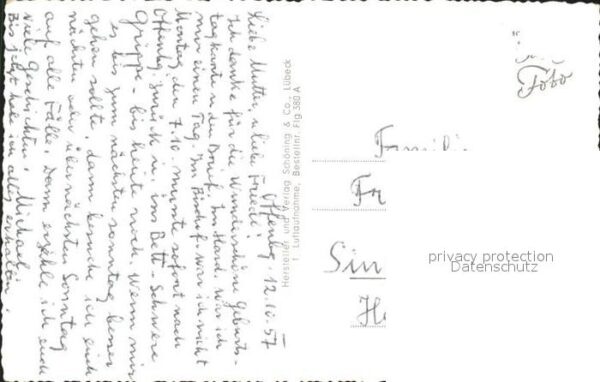 Offenbg. 12.10.57
Liebe Mutter, u. liebe Friedel!
Ich danke für die wunderschöne Geburts-
tagkarte u. den Brief. Im Hand. war ich
nur einen Tag. In war ich nicht
Montag den 7.10. musste sofort nach
Offenbg. zurück in ins Bett - Schwere
Grippe - bis heute noch. Wenn mir
es bis zum nächsten Sonntag besser
gehen sollte, dann besuche ich euch
nächsten oder übernächsten Sonntag
auf alle Fälle. Dann erzähle ich euch
viele Geschichten. Michael
Bis jetzt hab ich alles erhalten!
Hersteller und Verlag Schöning & Co., Lübeck
Luftaufnahme, Bestellnr. Flg 380 A
Foto
Famili
Fr
Sin
He
privacy protection
Datenschutz